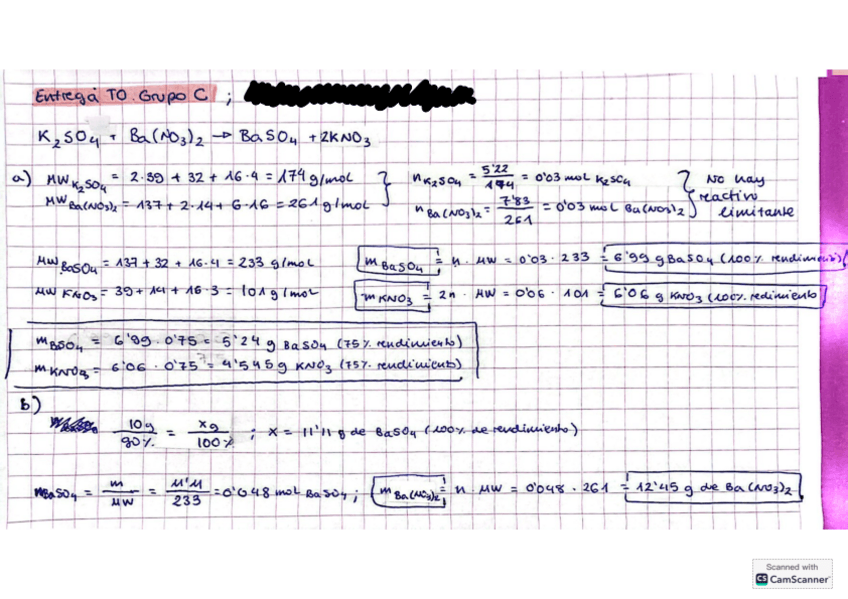 Entrega TO. Grupo C ;
K₂SO₄ + Ba(NO₃)₂ → BaSO₄ + 2KNO₃
a) MW K₂SO₄ = 2·39 + 32 + 16·4 = 174 g/mol
MW Ba(NO₃)₂ = 137 + 2·14 + 6·16 = 261 g/mol
n K₂SO₄ = 5'22/174 = 0'03 mol K₂SO₄
n Ba(NO₃)₂ = 7'83/261 = 0'03 mol Ba(NO₃)₂
No hay
reactivo
limitante
MW BaSO₄ = 137 + 32 + 16·4 = 233 g/mol
m BaSO₄ = n · MW = 0'03 · 233 = 6'99 g BaSO₄ (100% rendimiento)
MW KNO₃ = 39 + 14 + 16·3 = 101 g/mol
m KNO₃ = 2n · MW = 0'06 · 101 = 6'06 g KNO₃ (100% redimiento)
m BSO₄ = 6'99 · 0'75 = 5'24 g BaSO₄ (75% rendimiento)
m KNO₃ = 6'06 · 0'75 = 4'545 g KNO₃ (75% rendimiento)
b)
10g/90% = xg/100% ; x = 11'11 g de BaSO₄ (100% de rendimiento)
n BaSO₄ = m/MW = 11'11/233 = 0'048 mol BaSO₄ ; m Ba(NO₃)₂ = n · MW = 0'048 · 261 = 12'45 g de Ba(NO₃)₂
Scanned with
CS CamScanner